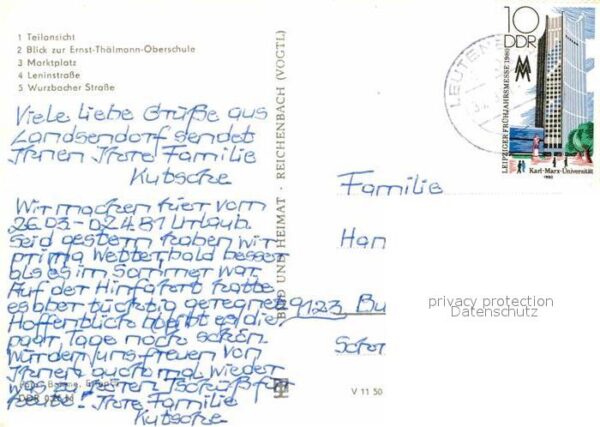 1 Teilansicht
2 Blick zur Ernst-Thälmann-Oberschule
3 Marktplatz
4 Leninstraße
5 Wurzbacher Straße
Viele liebe Grüße aus
Landsendorf sendet
Ihnen Ihre Familie
Kutsche
Wir machen hier vom
26.03-02.4.81 Urlaub.
Seid gestern haben wir
prima Wetter bald besser
als es im Sommer war
Auf der Hinfahrt hatte
es aber tüchtig geregnet
Hoffentlich bleibt es die
paar Tage noch schön.
Würden uns freuen von
Ihnen auch mal wieder
was zu hören Tschüß für
heute. Ihre Familie
Kutsche
BILD UND HEIMAT · REICHENBACH (VOGTL)
V 11 50
Familie
Han
9123 Bu
Schr
10
DDR
LEIPZIGER FRÜHJAHRSMESSE 1980
Karl-Marx-Universität
1980
LEUTENB
privacy protection
Datenschutz